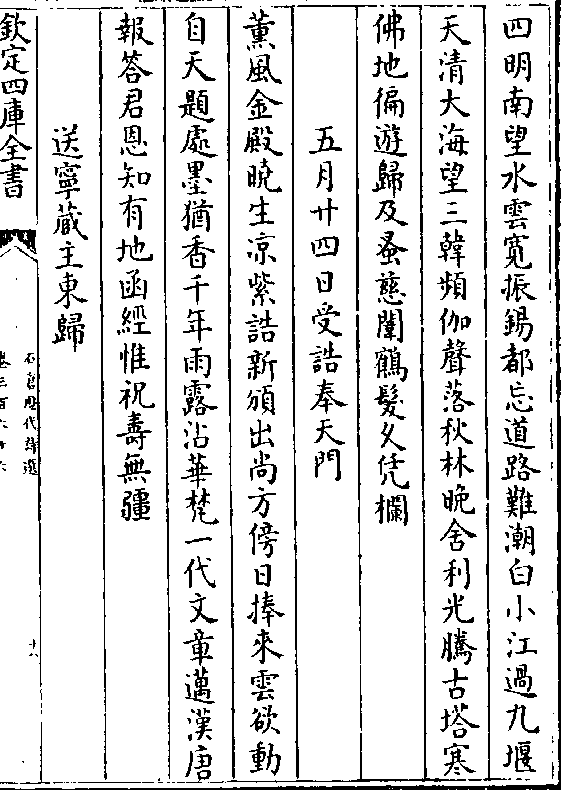 四明南望水雲寛振錫都忘道路難潮白小江過九堰
天清大海望三韓頻伽聲落秋林晚舍利光騰古塔寒
佛地徧遊歸及蚤慈闈鶴髮久凭欄
五月廿四日受誥奉天門
薰風金殿曉生凉紫誥新頒出尚方傍日捧來雲欲動
自天題處墨猶香千年雨露沾華梵一代文章邁漢唐
報答君恩知有地函經惟祝壽無疆
送寧蔵主東歸
欽定四庫全書
石倉歴代詩選
卷三百六十六